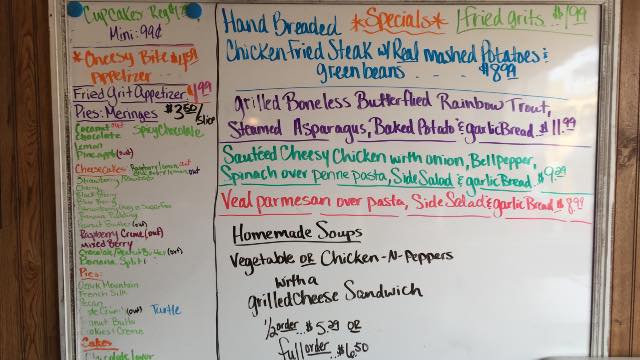 Cupcakes Reg $1.99
Mini: 99¢
*Cheesy Bites $4.99
Appetizer
Fried Grit Appetizer $4.99
Pies: Meringes $3.50/
slice
Coconut out Spicy Chocolate
Chocolate
Lemon
Pineapple (out)
Cheesecakes
Peanut Butter (out)
Raspberry Creme (out)
Mixed Berry
Chocolate/Peanut Butter (out)
Banana Split
Pies:
Ozark Mountain
French Silk
Pecan
(out) Turtle
Peanut Butter
Cookies & Creme
Cakes
Chocolate Lover
*Specials* Fried grits $1.99
Hand Breaded
Chicken Fried Steak w/Real mashed Potatoes &
green beans . . . $8.99
grilled Boneless Butterflied Rainbow Trout,
Steamed Asparagus, Baked Potato & garlic Bread $11.99
Sautéed Cheesy Chicken with onion, Bell Pepper,
Spinach over penne pasta, Side Salad & garlic Bread $9.29
Veal parmesan over pasta, Side Salad & garlic Bread $8.99
Homemade Soups
Vegetable OR Chicken-N-Peppers
with a
grilled Cheese Sandwich
1/2 order... $5.29 OR
full order... $6.50